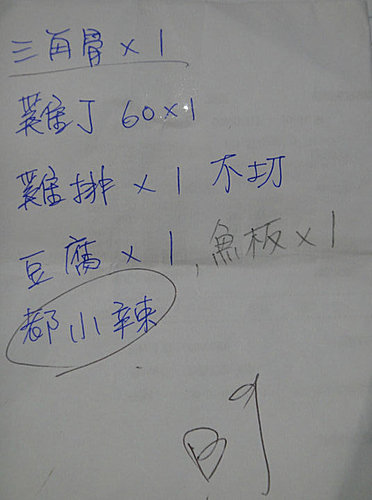 三角骨 x 1
雞丁 60x1
雞排 x 1 不切
豆腐 x 1, 魚板 x 1
都小辣